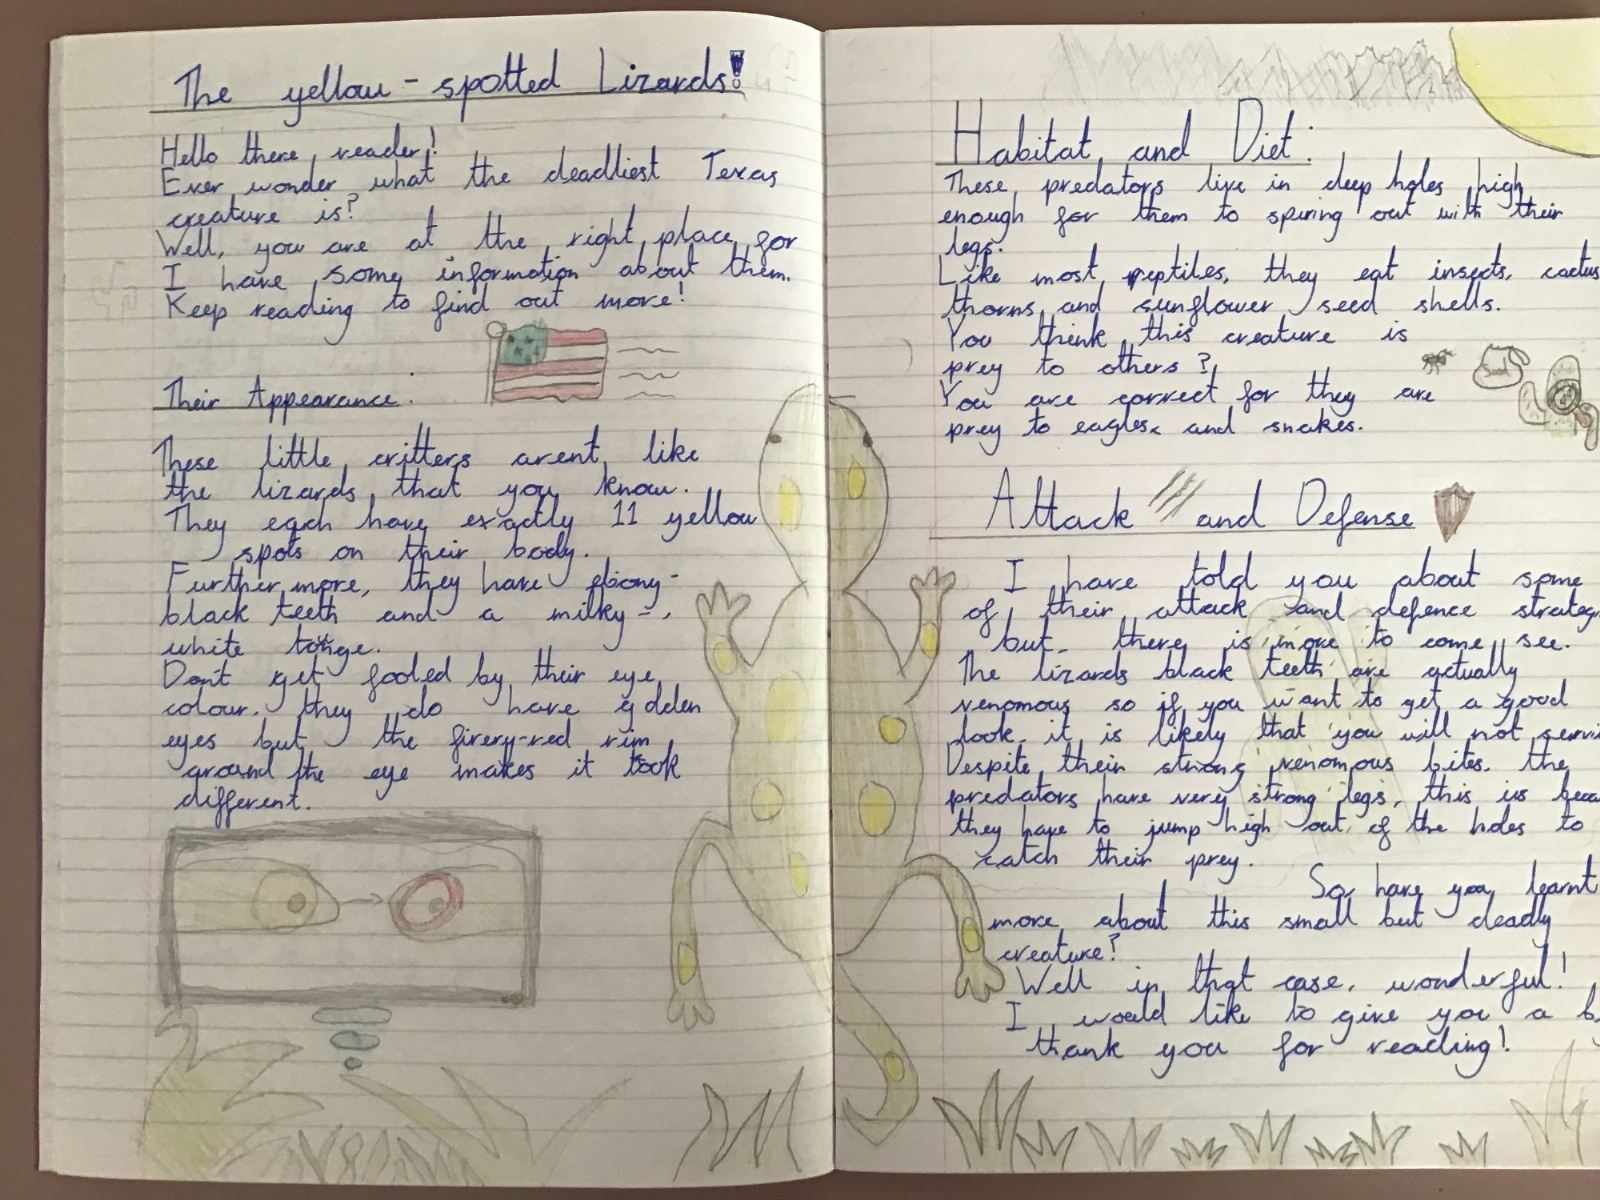 The yellow-spotted Lizards!
Hello there, reader!
Ever wonder what the deadliest Texas
creature is?
Well, you are at the right place for
I have some information about them.
Keep reading to find out more!
Their Appearance:
These little critters arent like
the lizards that you know.
They each have exactly 11 yellow
spots on their body.
Furthermore, they have ebony-
black teeth and a milky-
white tonge.
Dont get fooled by their eye
colour. they do have golden
eyes but the firery-red rim
around the eye makes it look
different.
Habitat and Diet:
These predators live in deep holes high
enough for them to spring out with their
legs.
Like most reptiles, they eat insects, cactus
thorns and sunflower seed shells.
You think this creature is
prey to others?
You are correct for they are
prey to eagles and snakes.
Seed
Attack and Defense
I have told you about some
of their attack and defence
but there is more to come see.
The lizards black teeth are actually
venomous so if you want to get a good
look, it is likely that you will not
Despite their strong venomous bites, the
predators have very strong legs, this is
they have to jump high out of the holes to
catch their prey.
So, have you learnt
more about this small but deadly
creature?
Well in that case, wonderful!
I would like to give you a
thank you for reading!